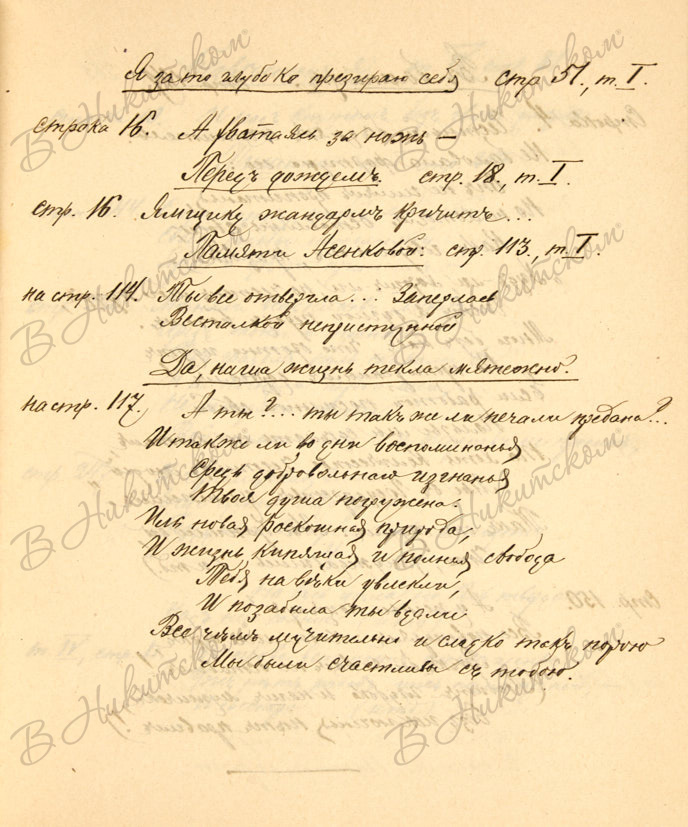 Я за то глубоко презираю себя стр. 51., т. I.
строка 16. А хватаясь за ножъ —
Передъ дождемъ. стр. 18., т. I.
стр. 16. Ямщику жандармъ кричитъ...
Памяти Асенковой: стр. 113., т. I.
на стр. 114. Ты все отвергла... Заперлась
Весталкой неприступной
Да, наша жизнь текла мятежно.
на стр. 117. А ты?... ты также ли печали предана?..
И также ли во дни воспоминанья
Средь добровольная изгнанья
Твоя душа погружена.
Иль новая роскошная природа,
И жизнь кипящая и полная свобода
Тебя на вѣки увлекли,
И позабыла ты вдали
Все чѣмъ мучительно и сладко такъ порою
Мы были счастливы съ тобою.
В Никитском